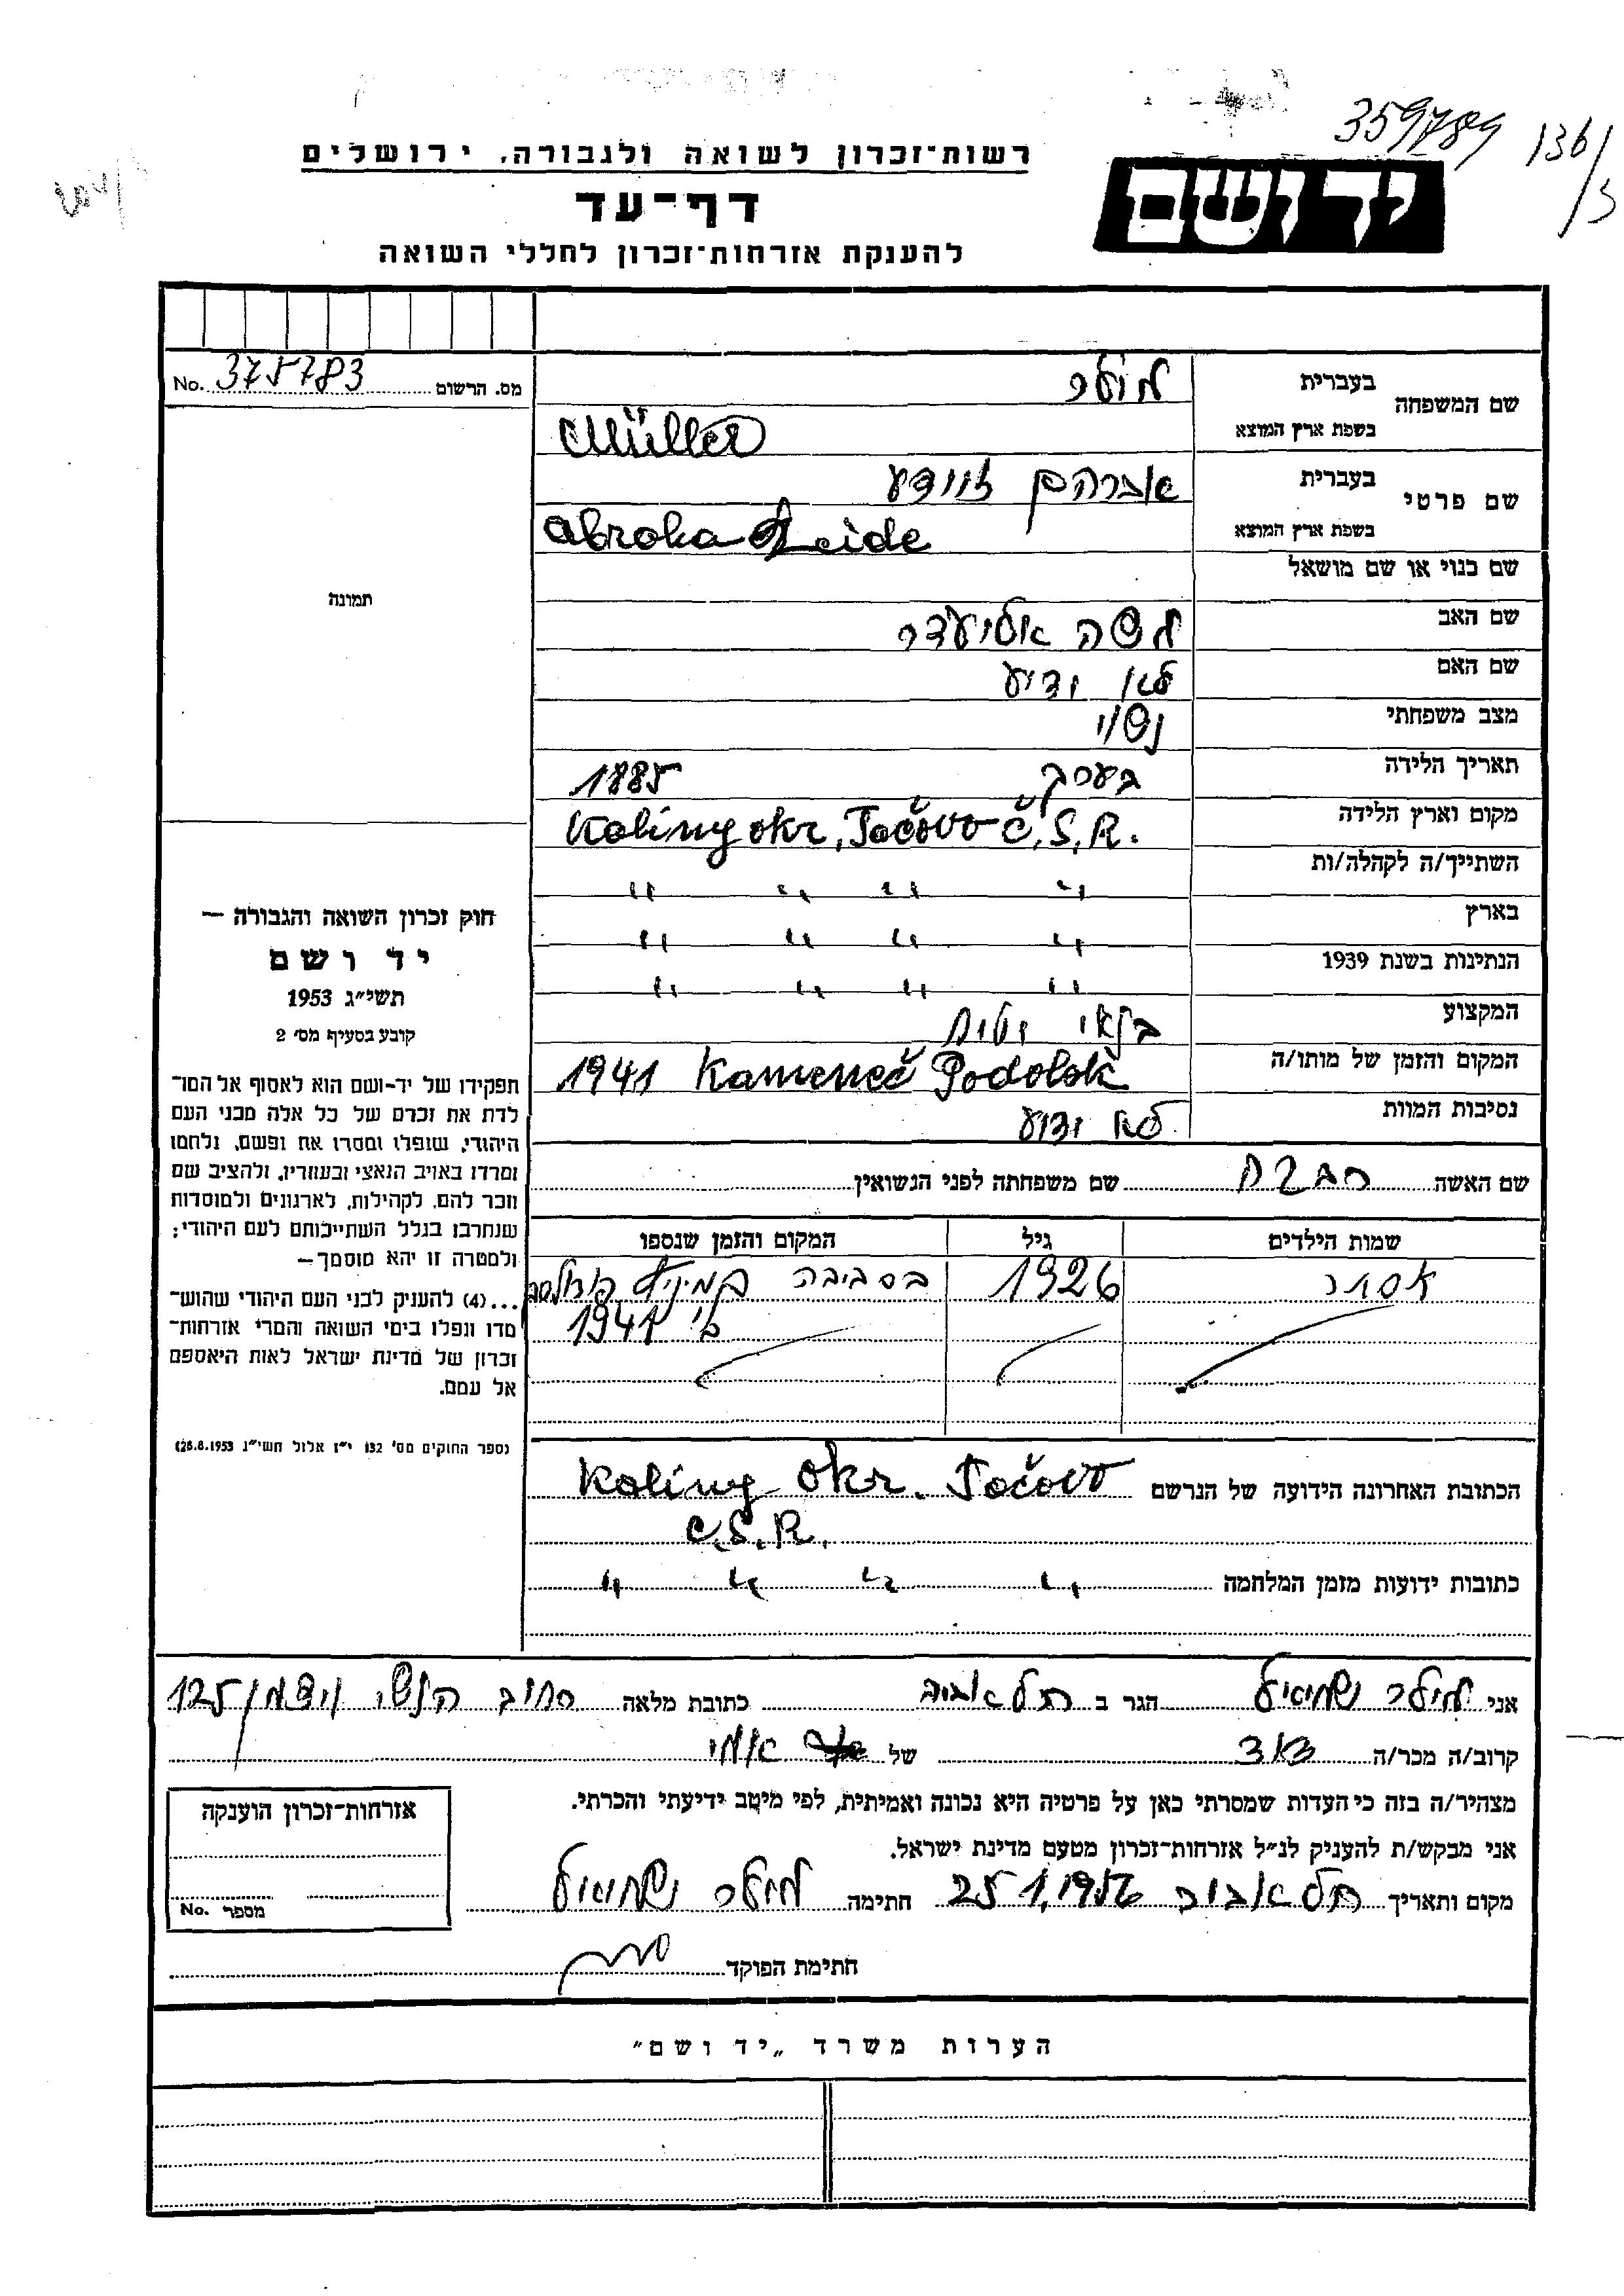 359789 136/3
רשות־זכרון לשואה ולגבורה, ירושלים
יד ושם
דף־עד
להענקת אזרחות־זכרון לחללי השואה
מס. הרשום 375783 No.
שם המשפחה
בעברית מולר
בשפת ארץ המוצא Müller
שם פרטי
בעברית אברהם זיידע
בשפת ארץ המוצא Abroha Zeide
שם כנוי או שם מושאל
שם האב משה אליעזר
שם האם לא ידוע
מצב משפחתי נשוי
תאריך הלידה בערך 1885
מקום וארץ הלידה Koliny okr. Točovo Č.S.R.
השתייך/ה לקהלה/ות " " " "
בארץ " " " "
הנתינות בשנת 1939 " " " "
המקצוע
המקום והזמן של מותו/ה 1941 Kameneč Podolok
נסיבות המוות לא ידוע
תמונה
חוק זכרון השואה והגבורה —
יד ושם
תשי״ג 1953
קובע בסעיף מס׳ 2
תפקידו של יד־ושם הוא לאסוף אל המו־
לדת את זכרם של כל אלה מבני העם
היהודי, שנפלו ומסרו את נפשם, נלחמו
ומרדו באויב הנאצי ובעוזריו, ולהציב שם
וזכר להם, לקהילות, לארגונים ולמוסדות
שנחרבו בגלל השתייכותם לעם היהודי;
ולמטרה זו יהא מוסמך—
...(4) להענק לבני העם היהודי שהוש־
מדו ונפלו בימי השואה והמרי אזרחות־
זכרון של מדינת ישראל לאות היאספם
אל עמם.
(ספר החוקים מס׳ 132 י״ז אלול תשי״ג 28.8.1953)
שם האשה שם משפחתה לפני הנשואין
שמות הילדים גיל המקום והזמן שנספו
אסתר 1926 בסביבה
1941
הכתובת האחרונה הידועה של הנרשם Koliny okr. Točovo
C.S.R.
כתובות ידועות מזמן המלחמה " " " "
אני מילר שמואל הגר ב תל אביב כתובת מלאה רחוב הנשי ויצמן 125
קרוב/ה מכר/ה של
מצהיר/ה בזה כי העדות שמסרתי כאן על פרטיה היא נכונה ואמיתית, לפי מיטב ידיעתי והכרתי.
אני מבקש/ת להעניק לנ״ל אזרחות־זכרון מטעם מדינת ישראל.
מקום ותאריך תל אביב 25.1.1956 חתימה מילר שמואל
חתימת הפוקד
אזרחות־זכרון הוענקה
מספר No.
הערות משרד „יד ושם״